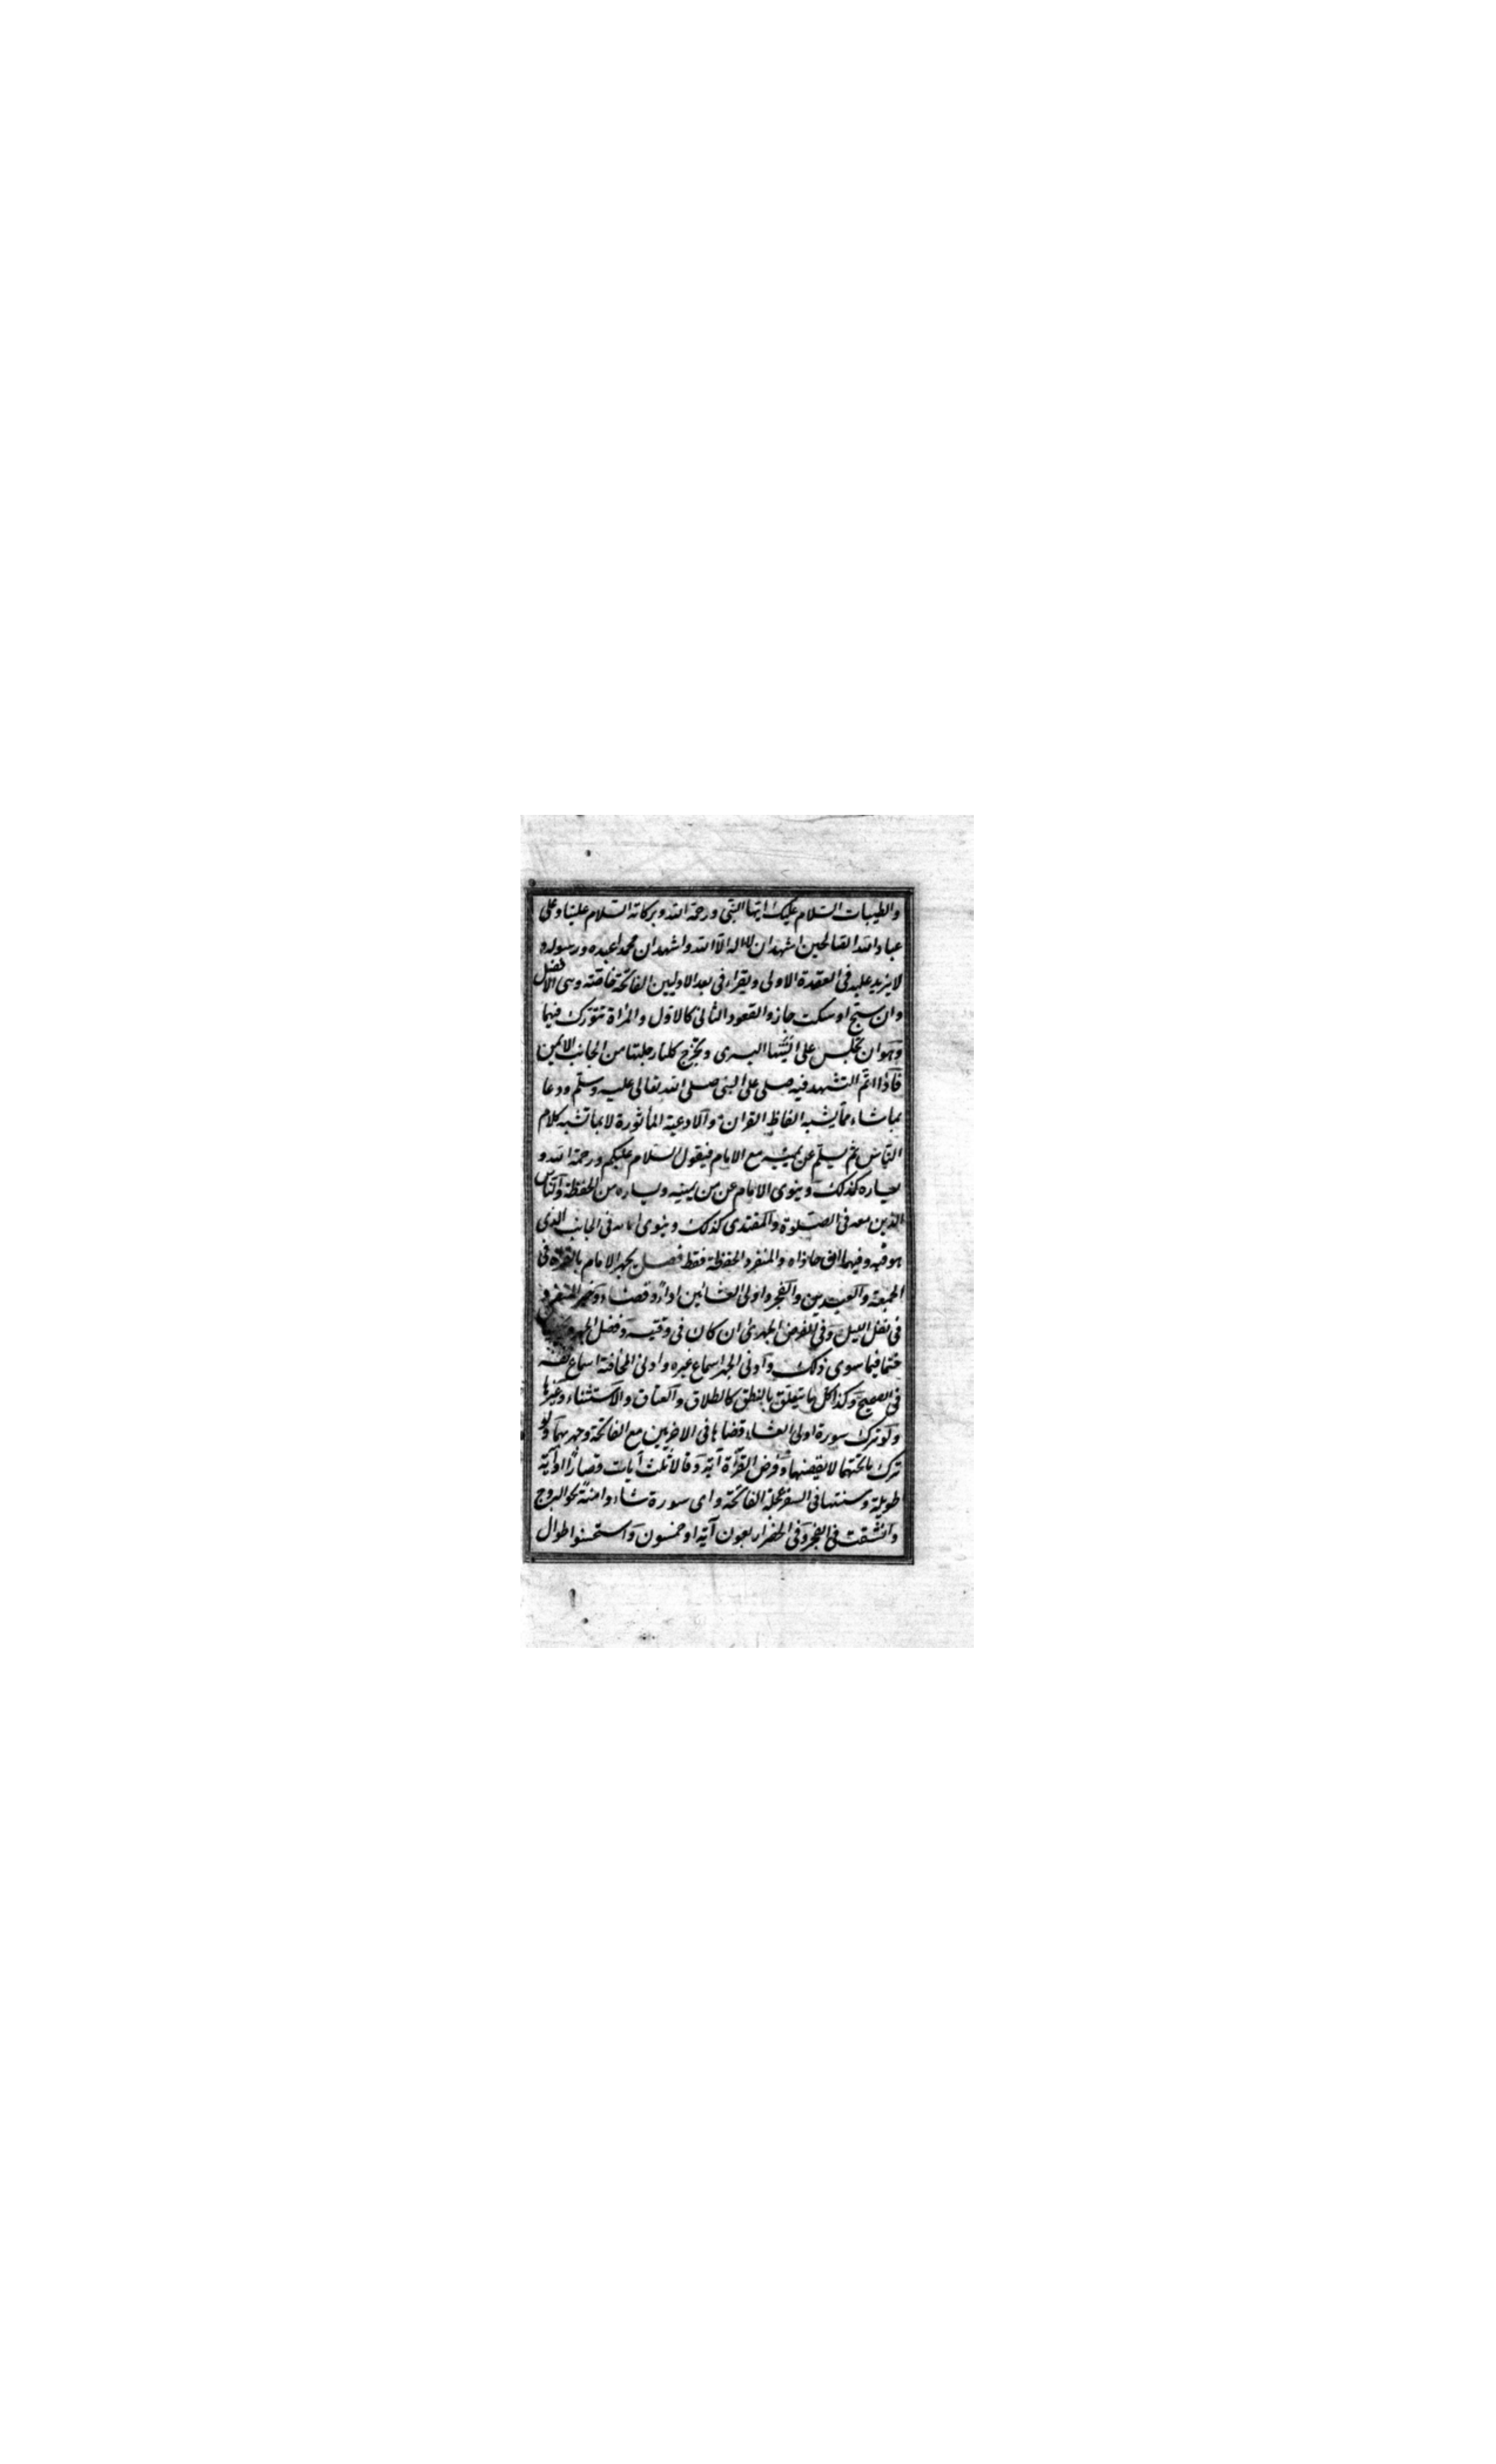 والطيبات السلام عليك ايها النبي ورحمة الله وبركاته السلام علينا وعلى
عباد الله الصالحين اشهد ان لا اله الا الله واشهد ان محمدا عبده ورسوله و
لا يزيد عليه في القعدة الاولى ويقراء في بعد الاوليين الفاتحة خاصة وهى الافضل
وان سبح او سكت جاز والقعود الثاني كالاول والمرأة تتورك فيهما
وهو ان تجلس على اليتها اليسرى وتخرج كلتا رجليها من الجانب الايمن
فاذا اتم التشهد فيه صلى على النبي صلى الله تعالى عليه وسلم ودعا
بما شاء مما يشبه الفاظ القران والادعية المأثورة لا بما تشبه كلام
الناس ثم يسلم عن يمينه مع الامام فيقول السلام عليكم ورحمة الله و
يساره كذلك وينوى الامام عن من يمينه ويساره من الحفظة والناس
الذين معه في الصلوة والمقتدى كذلك وينوى امامه في الجانب الذى
هو فيه وفيهما ان حاذاه والمنفرد الحفظة فقط فصل يجهر الامام بالقراءة في
الجمعة والعيدين والفجر واولى العشائين اداء وقضاء وخير المنفرد
في نفل الليل وفي الفرض الجهرى ان كان في وقتيه وفضل الجهر
حتما فيما سوى ذلك وادنى الجهر اسماع غيره وادنى المخافتة اسماع نفسه
في الصحيح وكذا كل ما يتعلق بالنطق كالطلاق والعتاق والاستثناء وغيرها
ولو ترك سورة اولى العشاء قضاها في الاخريين مع الفاتحة وجهر بهما ولو
ترك فاتحتها لا يقضيها وفرض القرأة آية وقالا ثلث آيات قصارا او آية
طويلة وسنتها في السفر عجلة الفاتحة واى سورة شاء وامنة نحو البروج
وانشقت في الفجر وفي الحضر اربعون آية او خمسون واستحسنوا طوال